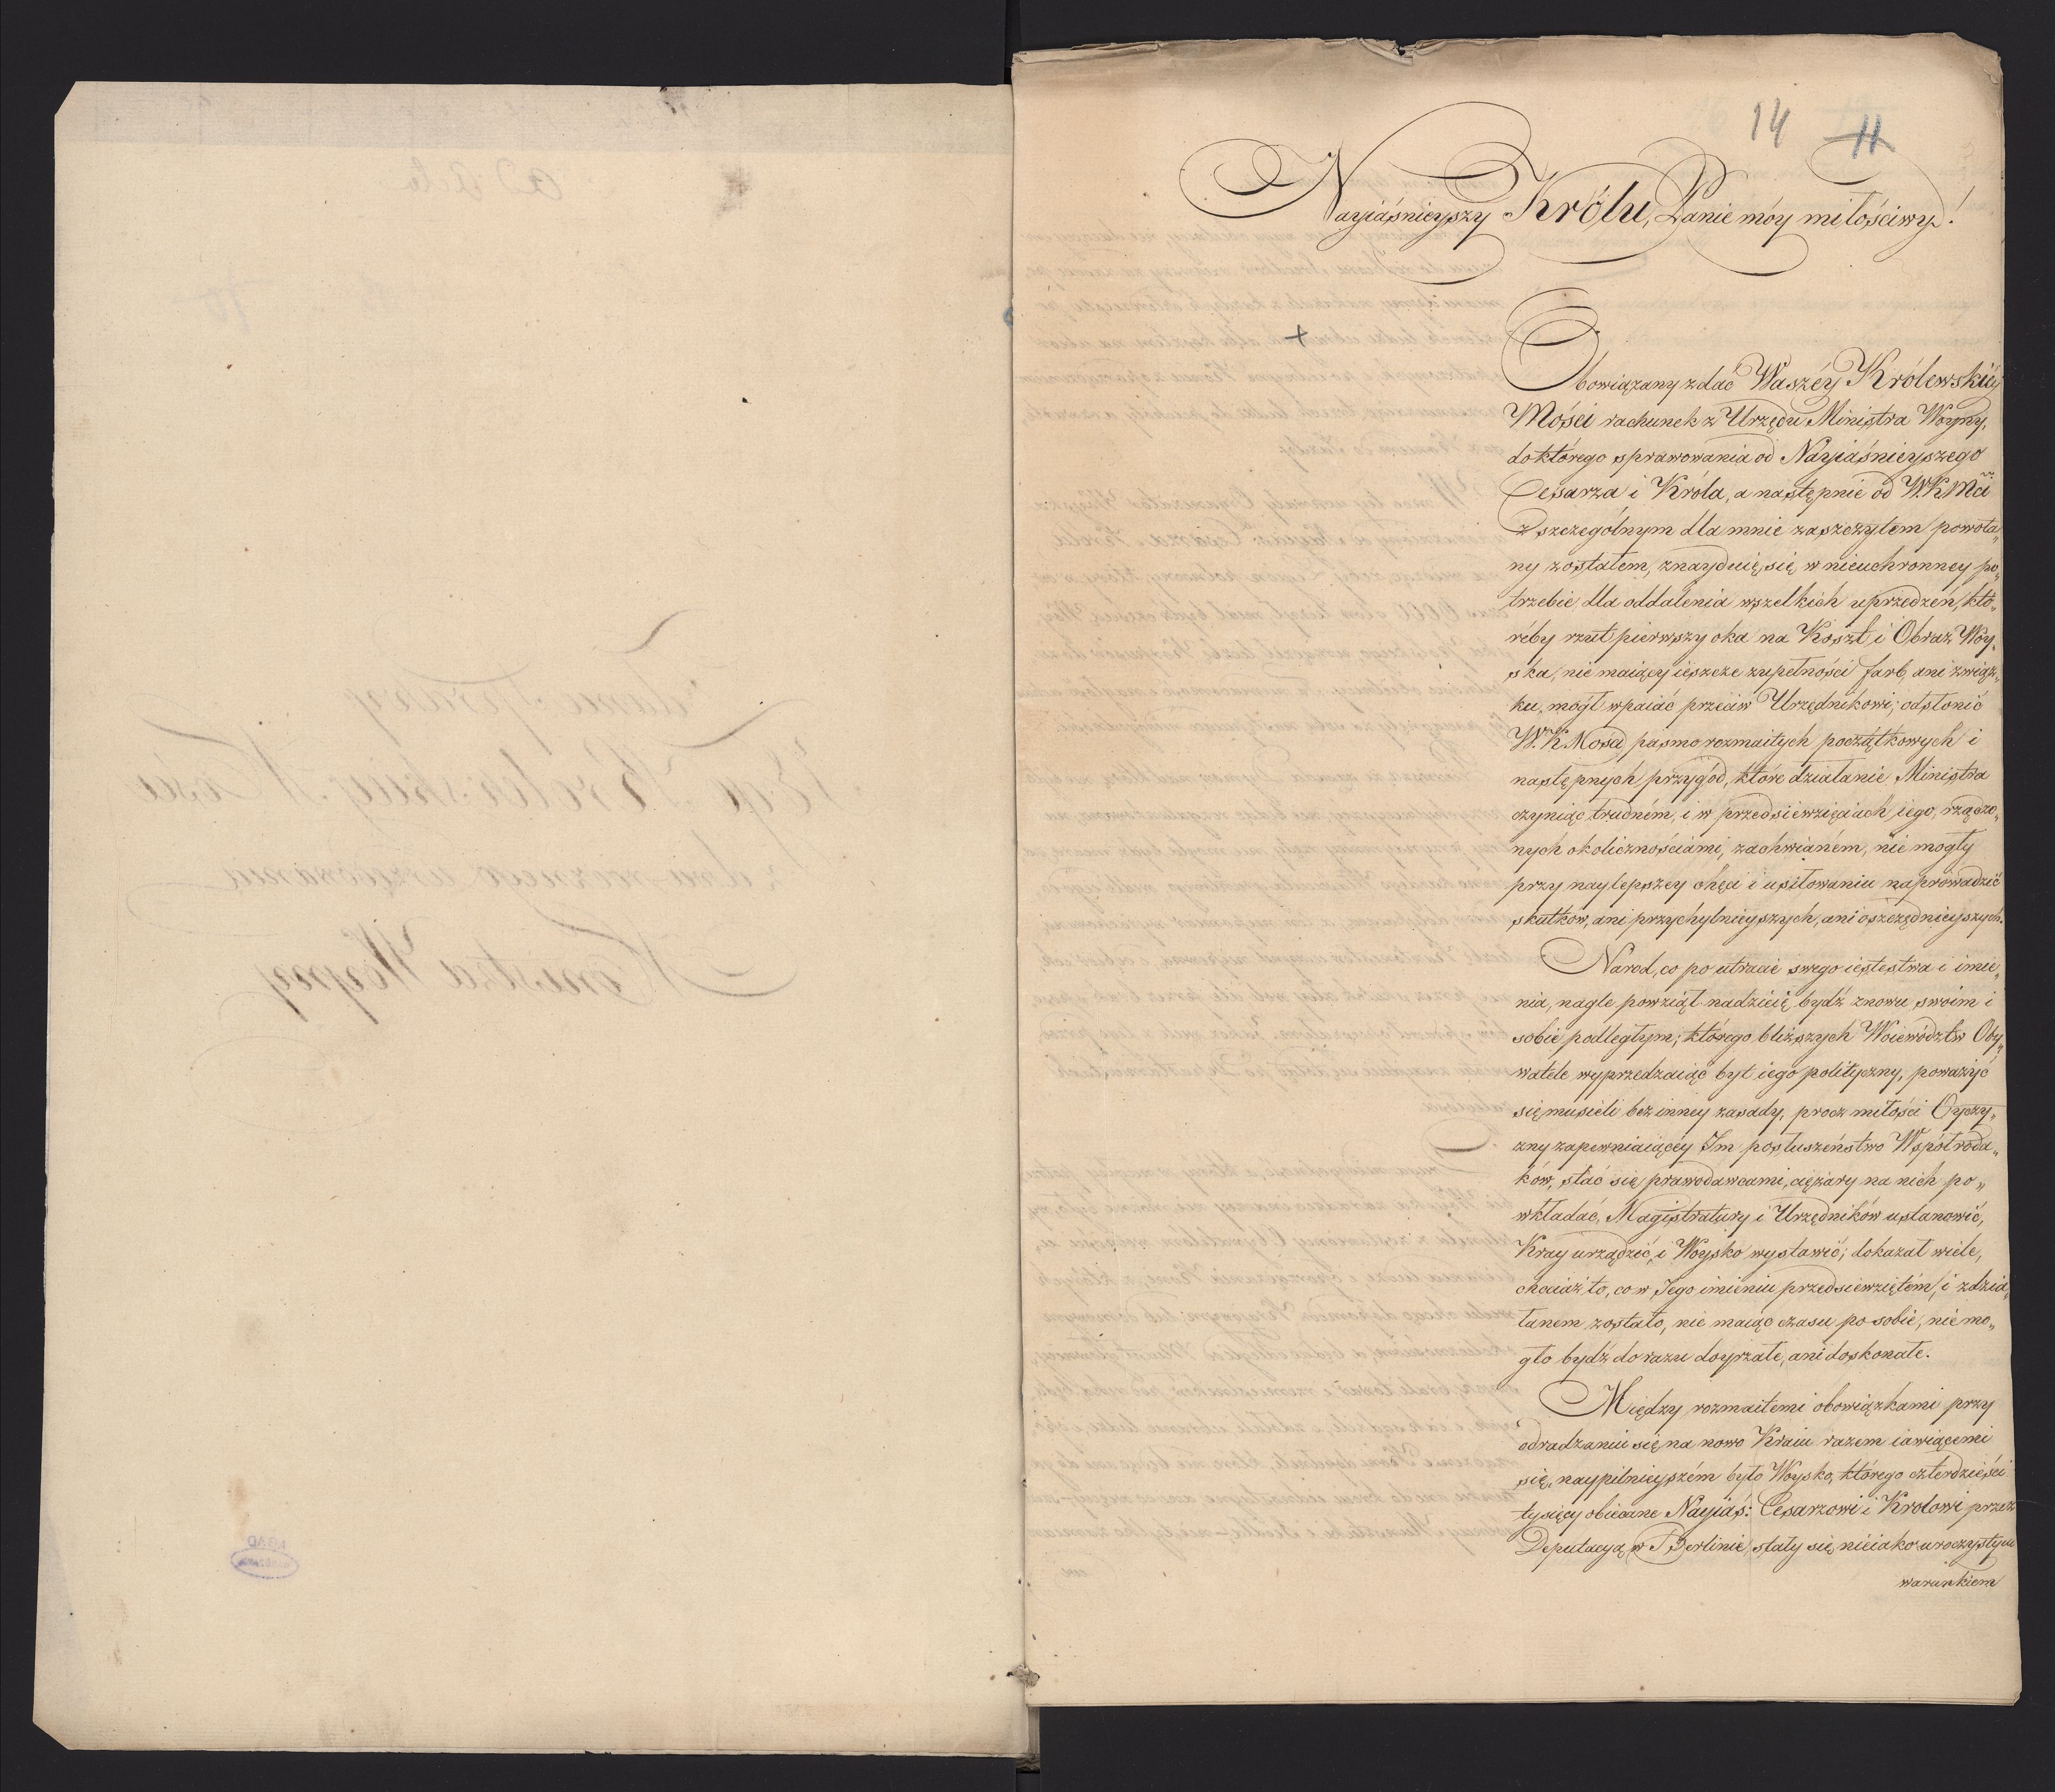 14 11
Nayiaśnieyszy Królu, Panie móy miłościwy!
Obowiązany zdać Waszéy Królewskiéy
Mości rachunek z Urzędu Ministra Woyny,
do którego sprawowania od Nayiaśnieyszego
Cesarza i Króla, a następnie od W.K.Mci
z szczególnym dla mnie zaszczytem powoła„
ny zostałem, znayduię się w nieuchronney po„
trzebie, dla oddalenia wszelkich uprzedzeń, któ„
réby rzut pierwszy oka na Koszt i Obraz Woy„
ska, nie maiący ieszcze zupełności farb, ani związ„
ku, mógł wpaiać przeciw Urzędnikowi; odsłonić
W.K.Mości pasmo rozmaitych początkowych i
następnych przygód, które działanie Ministra
czyniąc trudném, i w przedsięwzięciach iego, rządzo„
nych okolicznościami, zachwianém, nie mogły
przy naylepszey chęci i usiłowaniu naprowadzić
skutków, ani przychylnieyszych, ani oszczędnieyszych.
Narod, co po utracie swego iestestwa i imie„
nia, nagle powziął nadzieię bydź znowu swoim i
sobie podległym; którego bliższych Woiewództw Oby„
watele wyprzedzaiąc byt iego polityczny, poważyć
się musieli bez inney zasady, procz miłości Oyczy„
zny zapewniaiącéy Im posłuszeństwo Współroda„
ków, stać się prawodawcami, ciężary na nich po„
wkładać, Magistratury i Urzędników ustanowić,
Kray urządzić, i Woysko wystawić; dokazał wiele,
chociaż to, co w Jego imieniu przedsięwziętém, i zdzia„
łanem zostało, nie maiąc czasu po sobie, nie mo„
gło bydź do razu doyrzałe, ani doskonałe.
Między rozmaitemi obowiązkami przy
odradzaniu się na nowo Kraiu razem iawiącemi
się, naypilnieyszém było Woysko, którego czterdzieści
tysięcy obiecane Nayiaś: Cesarzowi i Krolowi przez
Deputacyą w Berlinie, stały się nieiako uroczystym
warunkiem